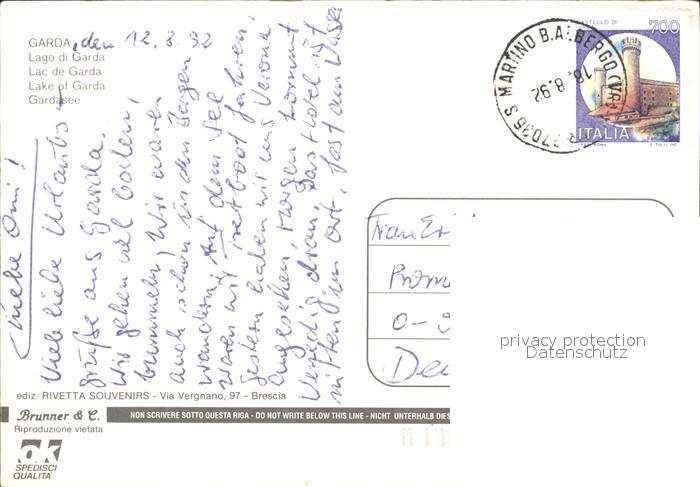 GARDA, den 12.8.92
Lago di Garda
Lac de Garda
Lake of Garda
Gardasee
Liebe Omi!
Viele liebe Urlaubs-
grüße aus Garda.
Wir gehen viel baden,
bummeln, Wir waren
auch schon in den Bergen
wandern. Auf dem See
waren wir Tretboot fahren,
gestern haben wir uns Verona
angesehen, morgen kommt
Venedig dran. Das Hotel ist
mitten im Ort, fast am Wasser
CASTELLO DI
700
ITALIA
37036 S MARTINO B. ALBERGO (VR)
18.8.92
Frau
O-
privacy protection
Datenschutz
ediz. RIVETTA SOUVENIRS - Via Vergnano, 97 - Brescia
Brunner & C.
NON SCRIVERE SOTTO QUESTA RIGA - DO NOT WRITE BELOW THIS LINE - NICHT UNTERHALB DIES
Riproduzione vietata
ok
SPEDISCI
QUALITA'